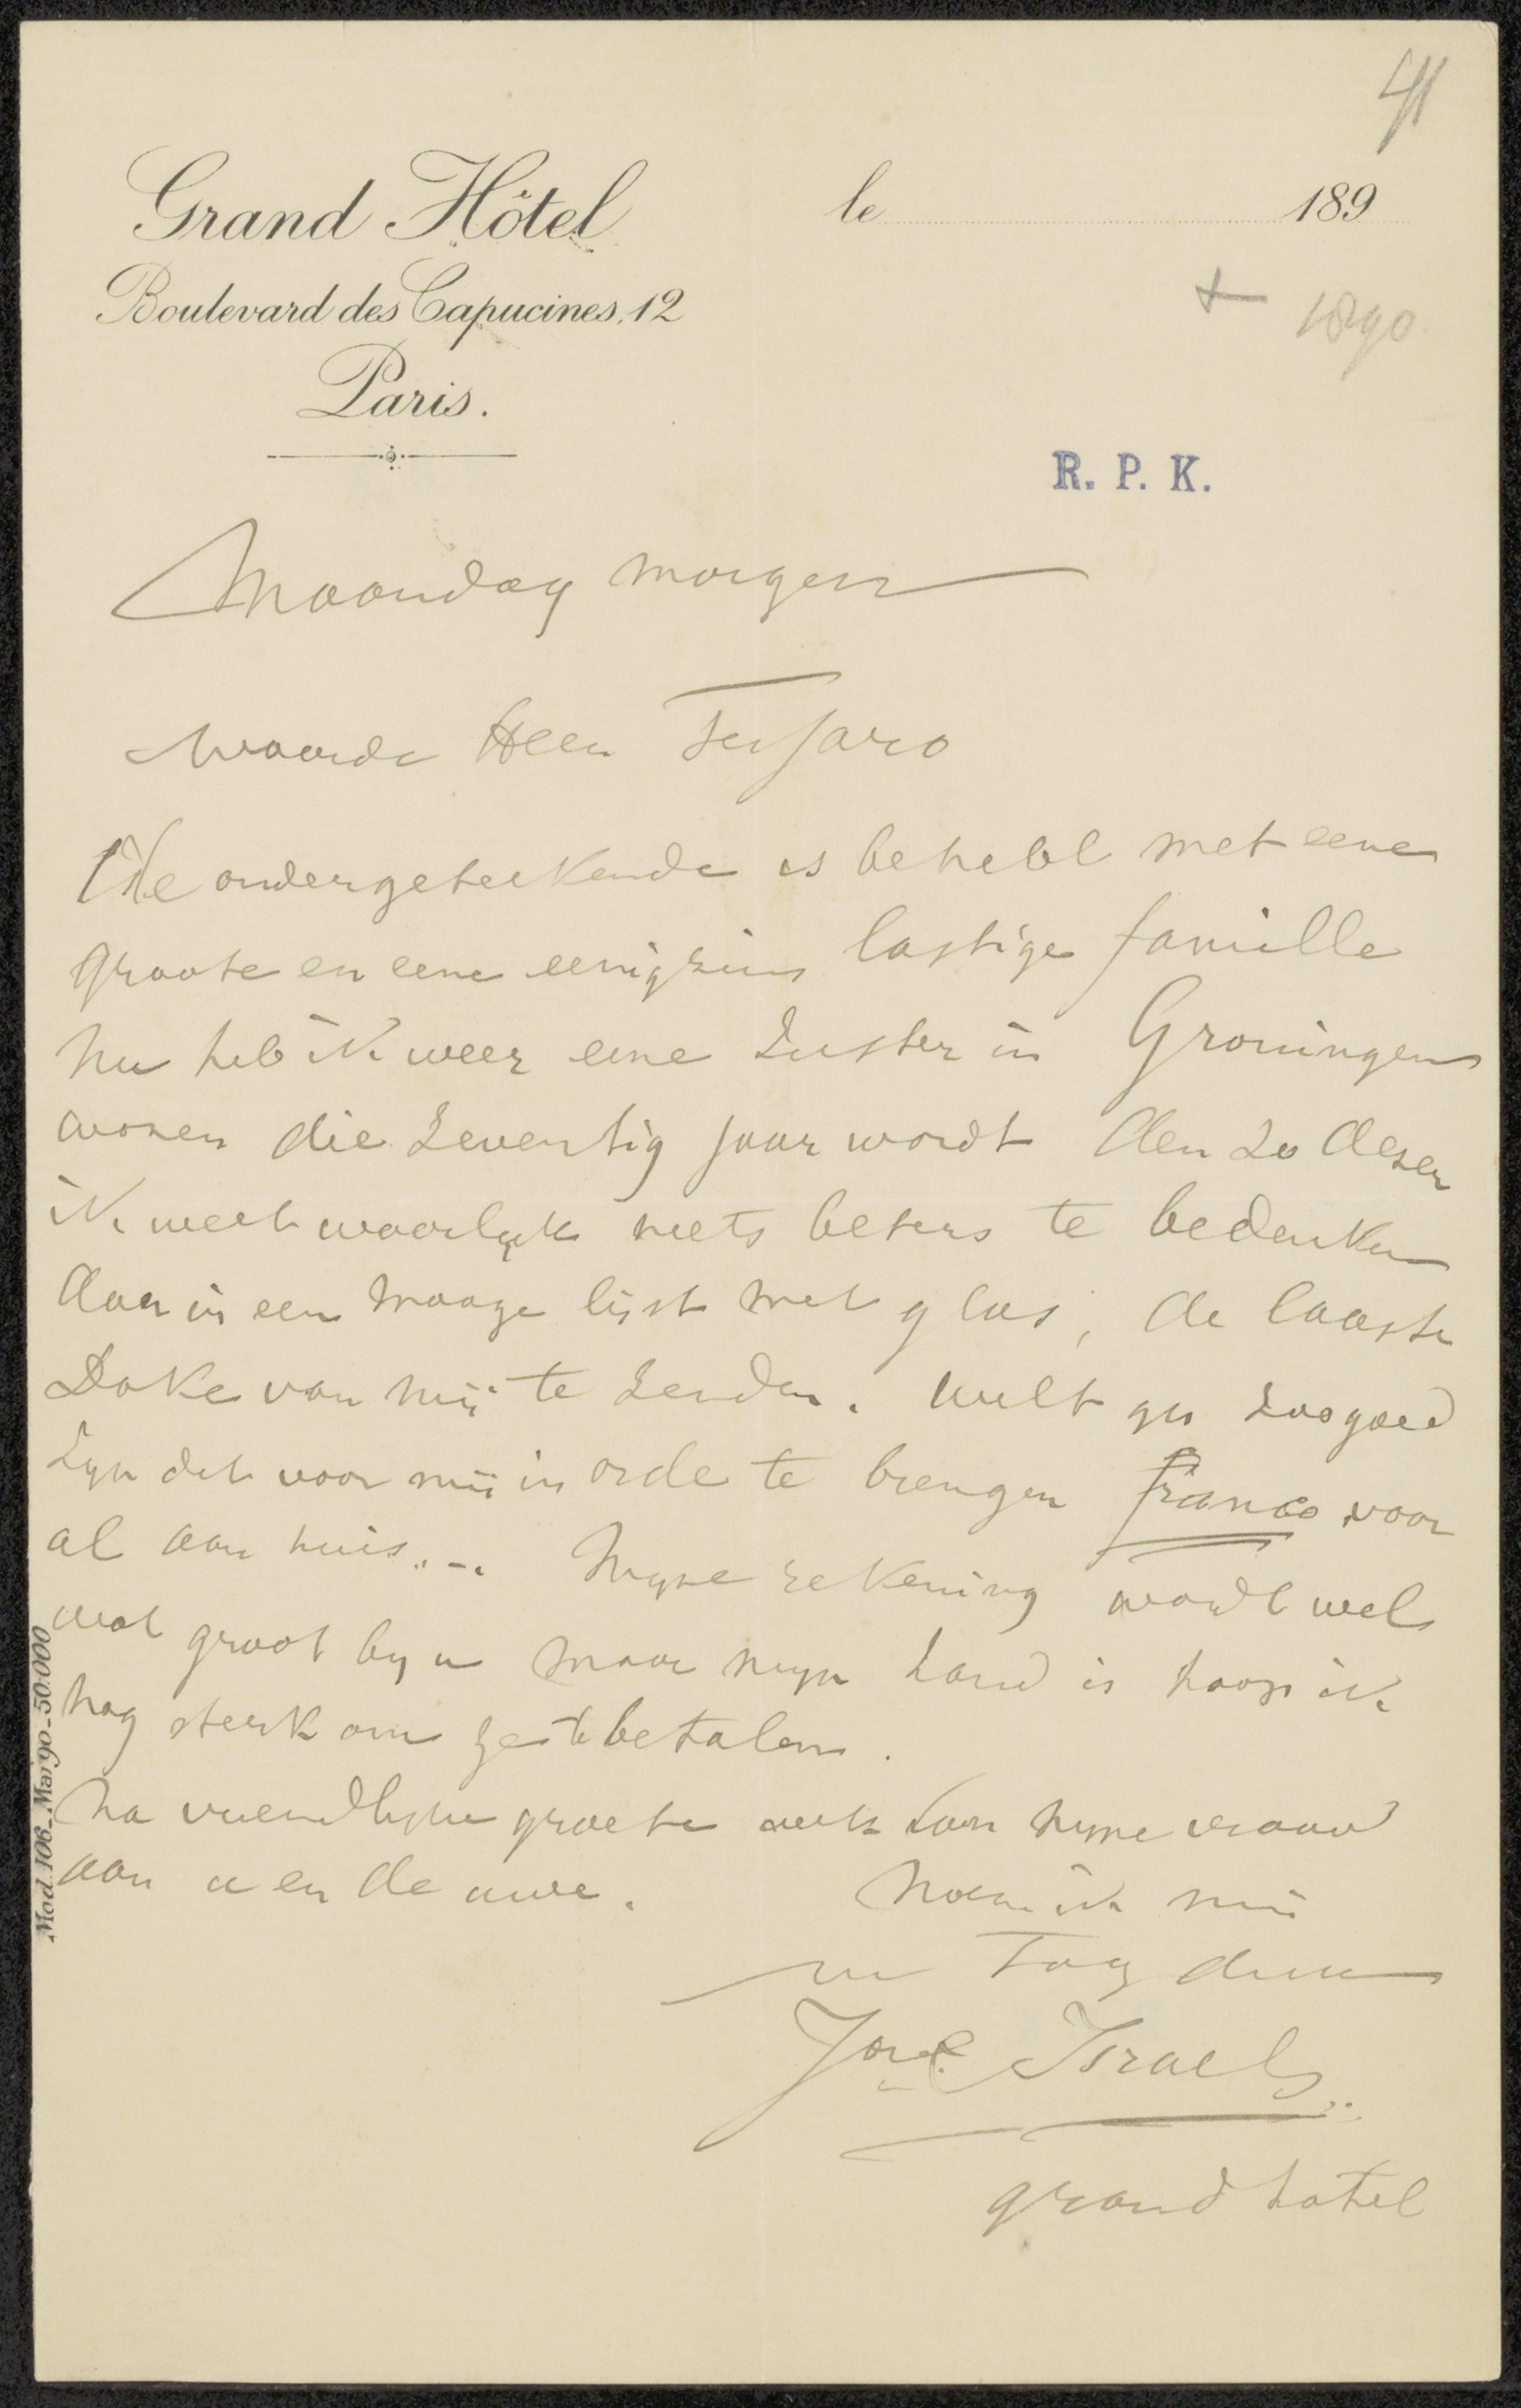 41
Grand Hôtel
Boulevard des Capucines, 12
Paris.
le 189
+ 1890
R. P. K.
Maandag morgen
Waarde Heer Tersaro
De ondergeteekende is behebt met eene
groote en eene eenigzins lastige famille
nu heb ik weer eene Zuster in Groningen
wonen die Zeventig jaar wordt den 20 dezer
ik weet waarlyk niets beters te bedenken
dan in een mooye lijst met glas, de laaste
Dake van mij te zenden. Wilt gij zoo goed
Zyn dit voor mij in orde te brengen franco voor
al aan huis... Myne rekening wordt wel
wat groot by u maar myn hand is hoop ik
nog sterk om ze te betalen.
Na vriendlyke groete ook van myne vrouw
aan u en de uwe.
Noem ik mij
uw Toeg dien
Joz. Israels
grand hotel
Mod. 106_Mai 90_50.000